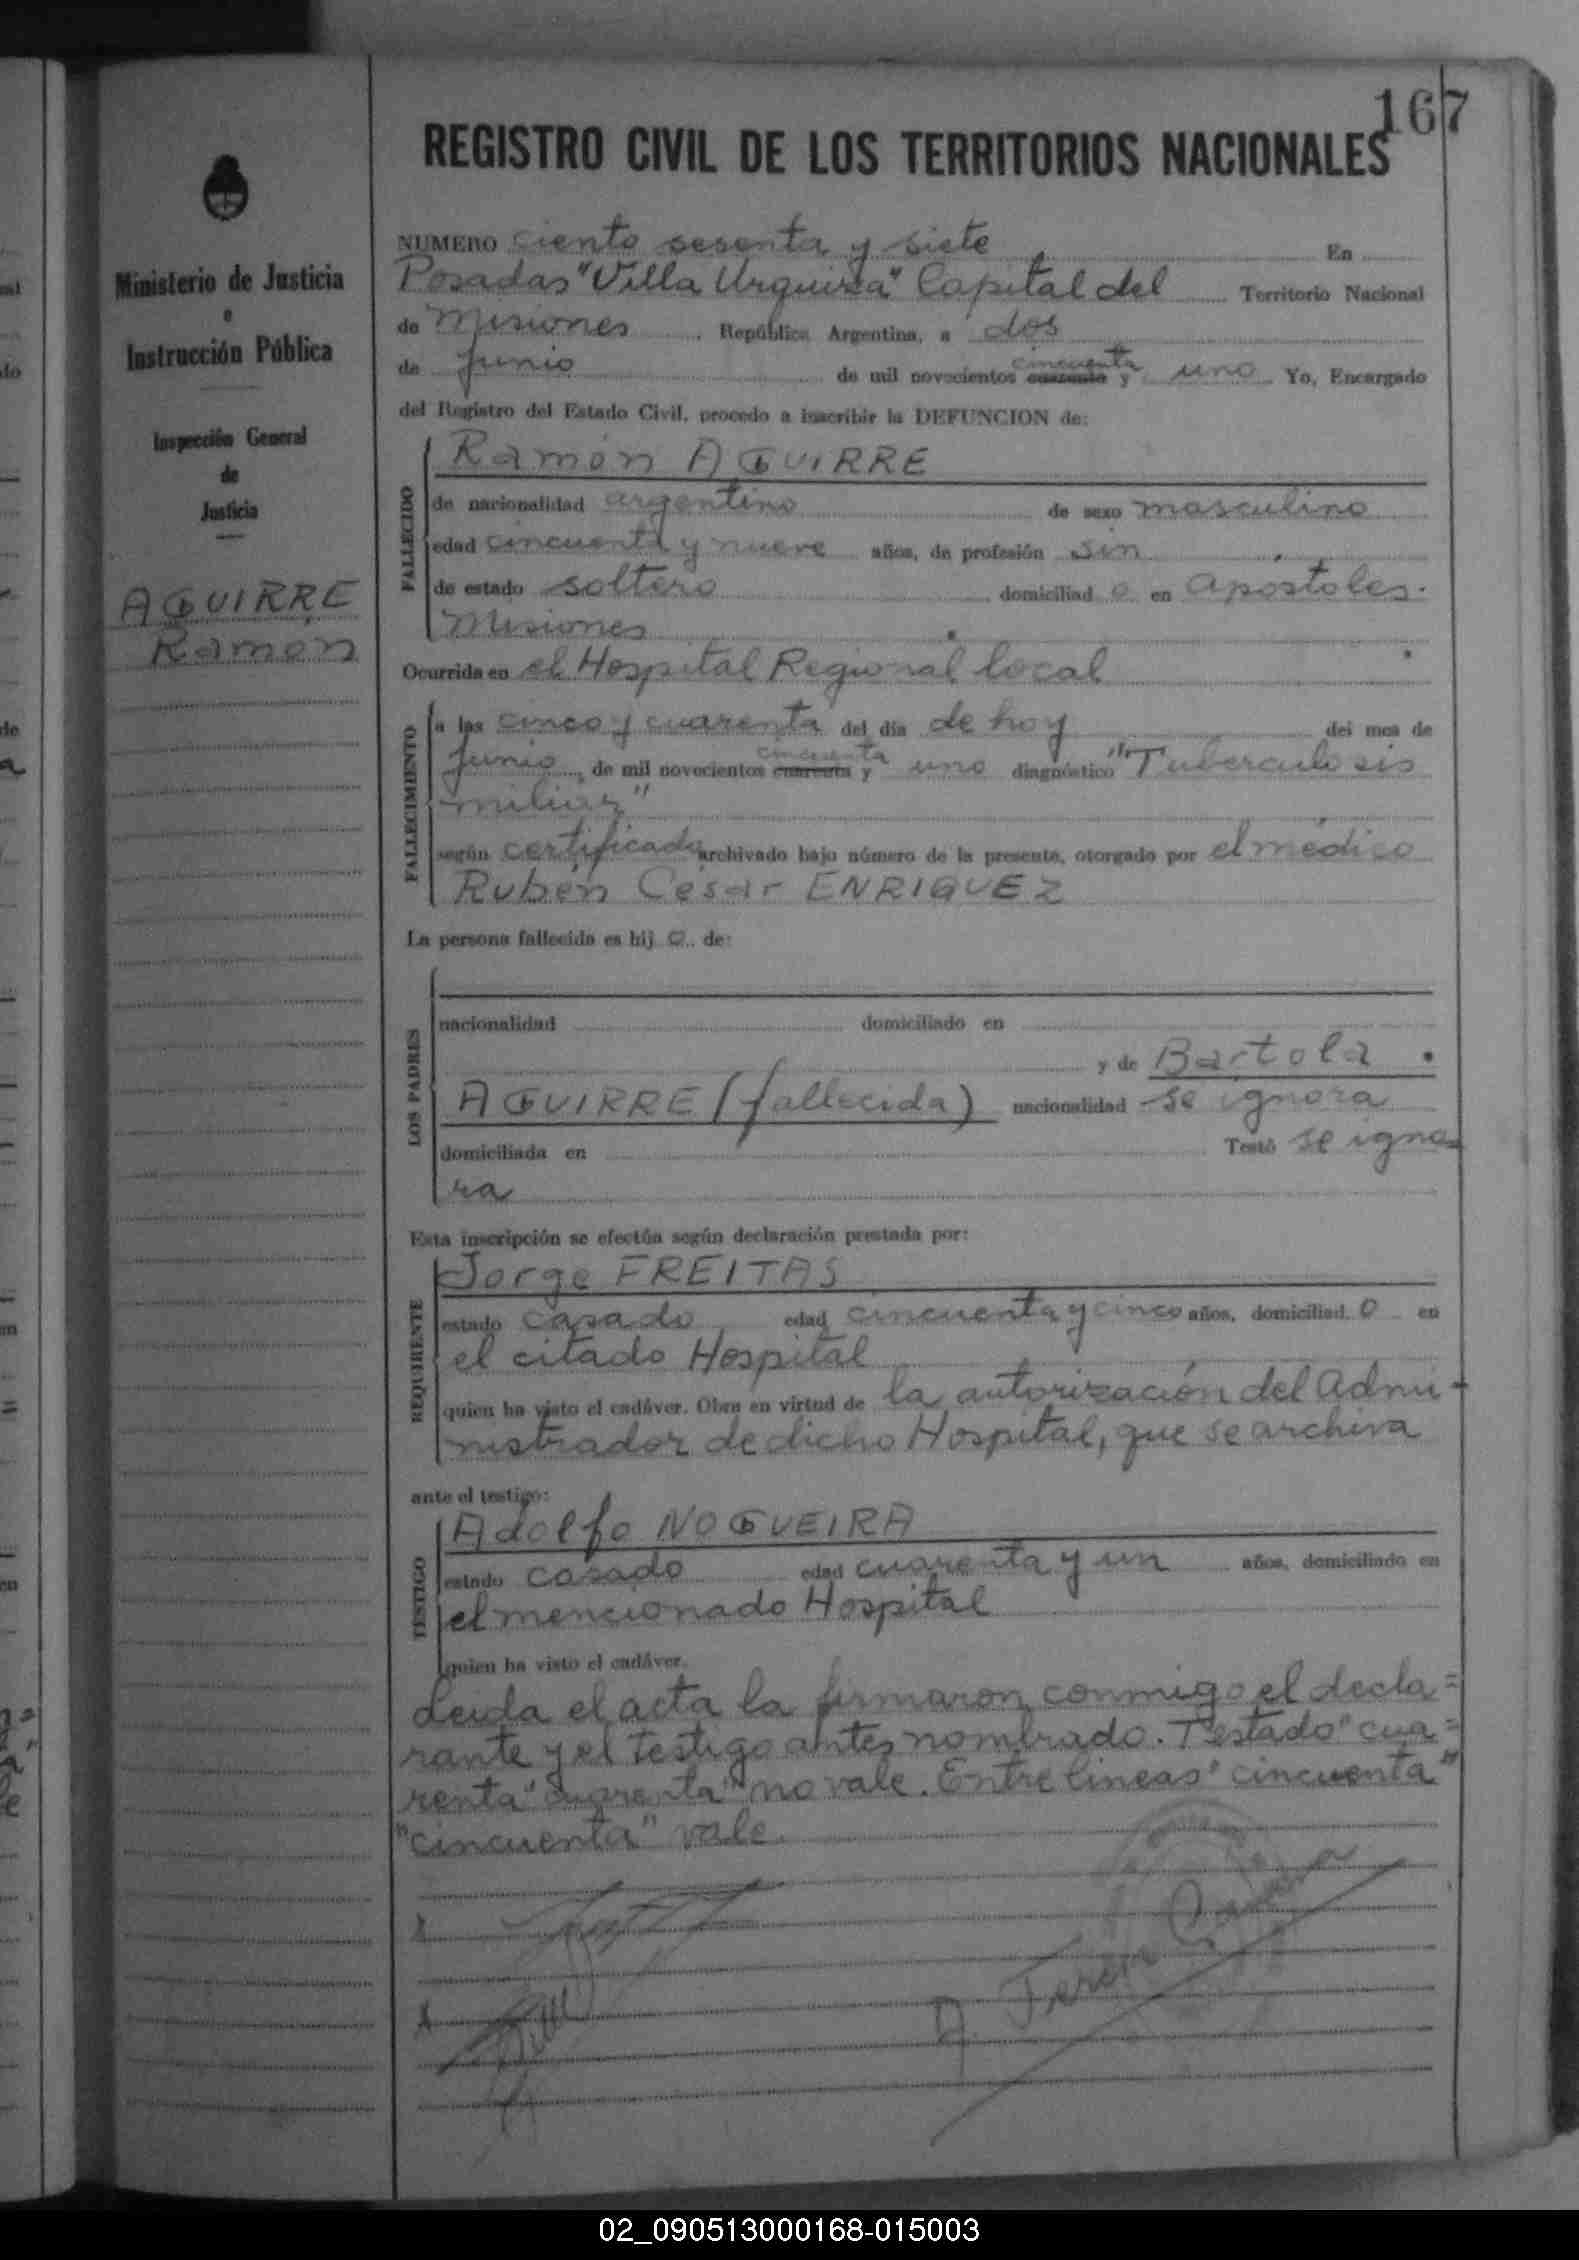 167
REGISTRO CIVIL DE LOS TERRITORIOS NACIONALES
Ministerio de Justicia
e
Instrucción Pública
Inspección General
de
Justicia
AGUIRRE
Ramón
NUMERO ciento sesenta y siete En
Posadas "Villa Urquiza" Capital del Territorio Nacional
de Misiones, República Argentina, a dos
de junio de mil novecientos cincuenta cuarenta y uno Yo, Encargado
del Registro del Estado Civil, procedo a inscribir la DEFUNCION de:
FALLECIDO
Ramón AGUIRRE
de nacionalidad argentino de sexo masculino
edad cincuenta y nueve años, de profesión sin
de estado soltero domiciliad o en Apóstoles.
Misiones
Ocurrida en el Hospital Regional local
FALLECIMIENTO
a las cinco y cuarenta del día de hoy del mes de
junio, de mil novecientos cincuenta cuarenta y uno diagnóstico "Tuberculosis
miliar"
según certificado archivado bajo número de la presente, otorgado por el médico
Rubén César ENRIQUEZ
La persona fallecida es hij o de:
LOS PADRES
nacionalidad domiciliado en
y de Bartola
AGUIRRE (fallecida) nacionalidad se ignora
domiciliada en Testó se igno=
ra
Esta inscripción se efectúa según declaración prestada por:
REQUIRENTE
Jorge FREITAS
estado casado edad cincuenta y cinco años, domiciliad o en
el citado Hospital
quien ha visto el cadáver. Obra en virtud de la autorización del Admi-
nistrador de dicho Hospital, que se archiva
ante el testigo:
TESTIGO
Adolfo NOGUEIRA
estado casado edad cuarenta y un años, domiciliado en
el mencionado Hospital
quien ha visto el cadáver.
Leida el acta la firmaron conmigo el decla=
rante y el testigo antes nombrado. Testado "cua=
renta" "cuarenta" no vale. Entre lineas "cincuenta"
"cincuenta" vale
02_090513000168-015003